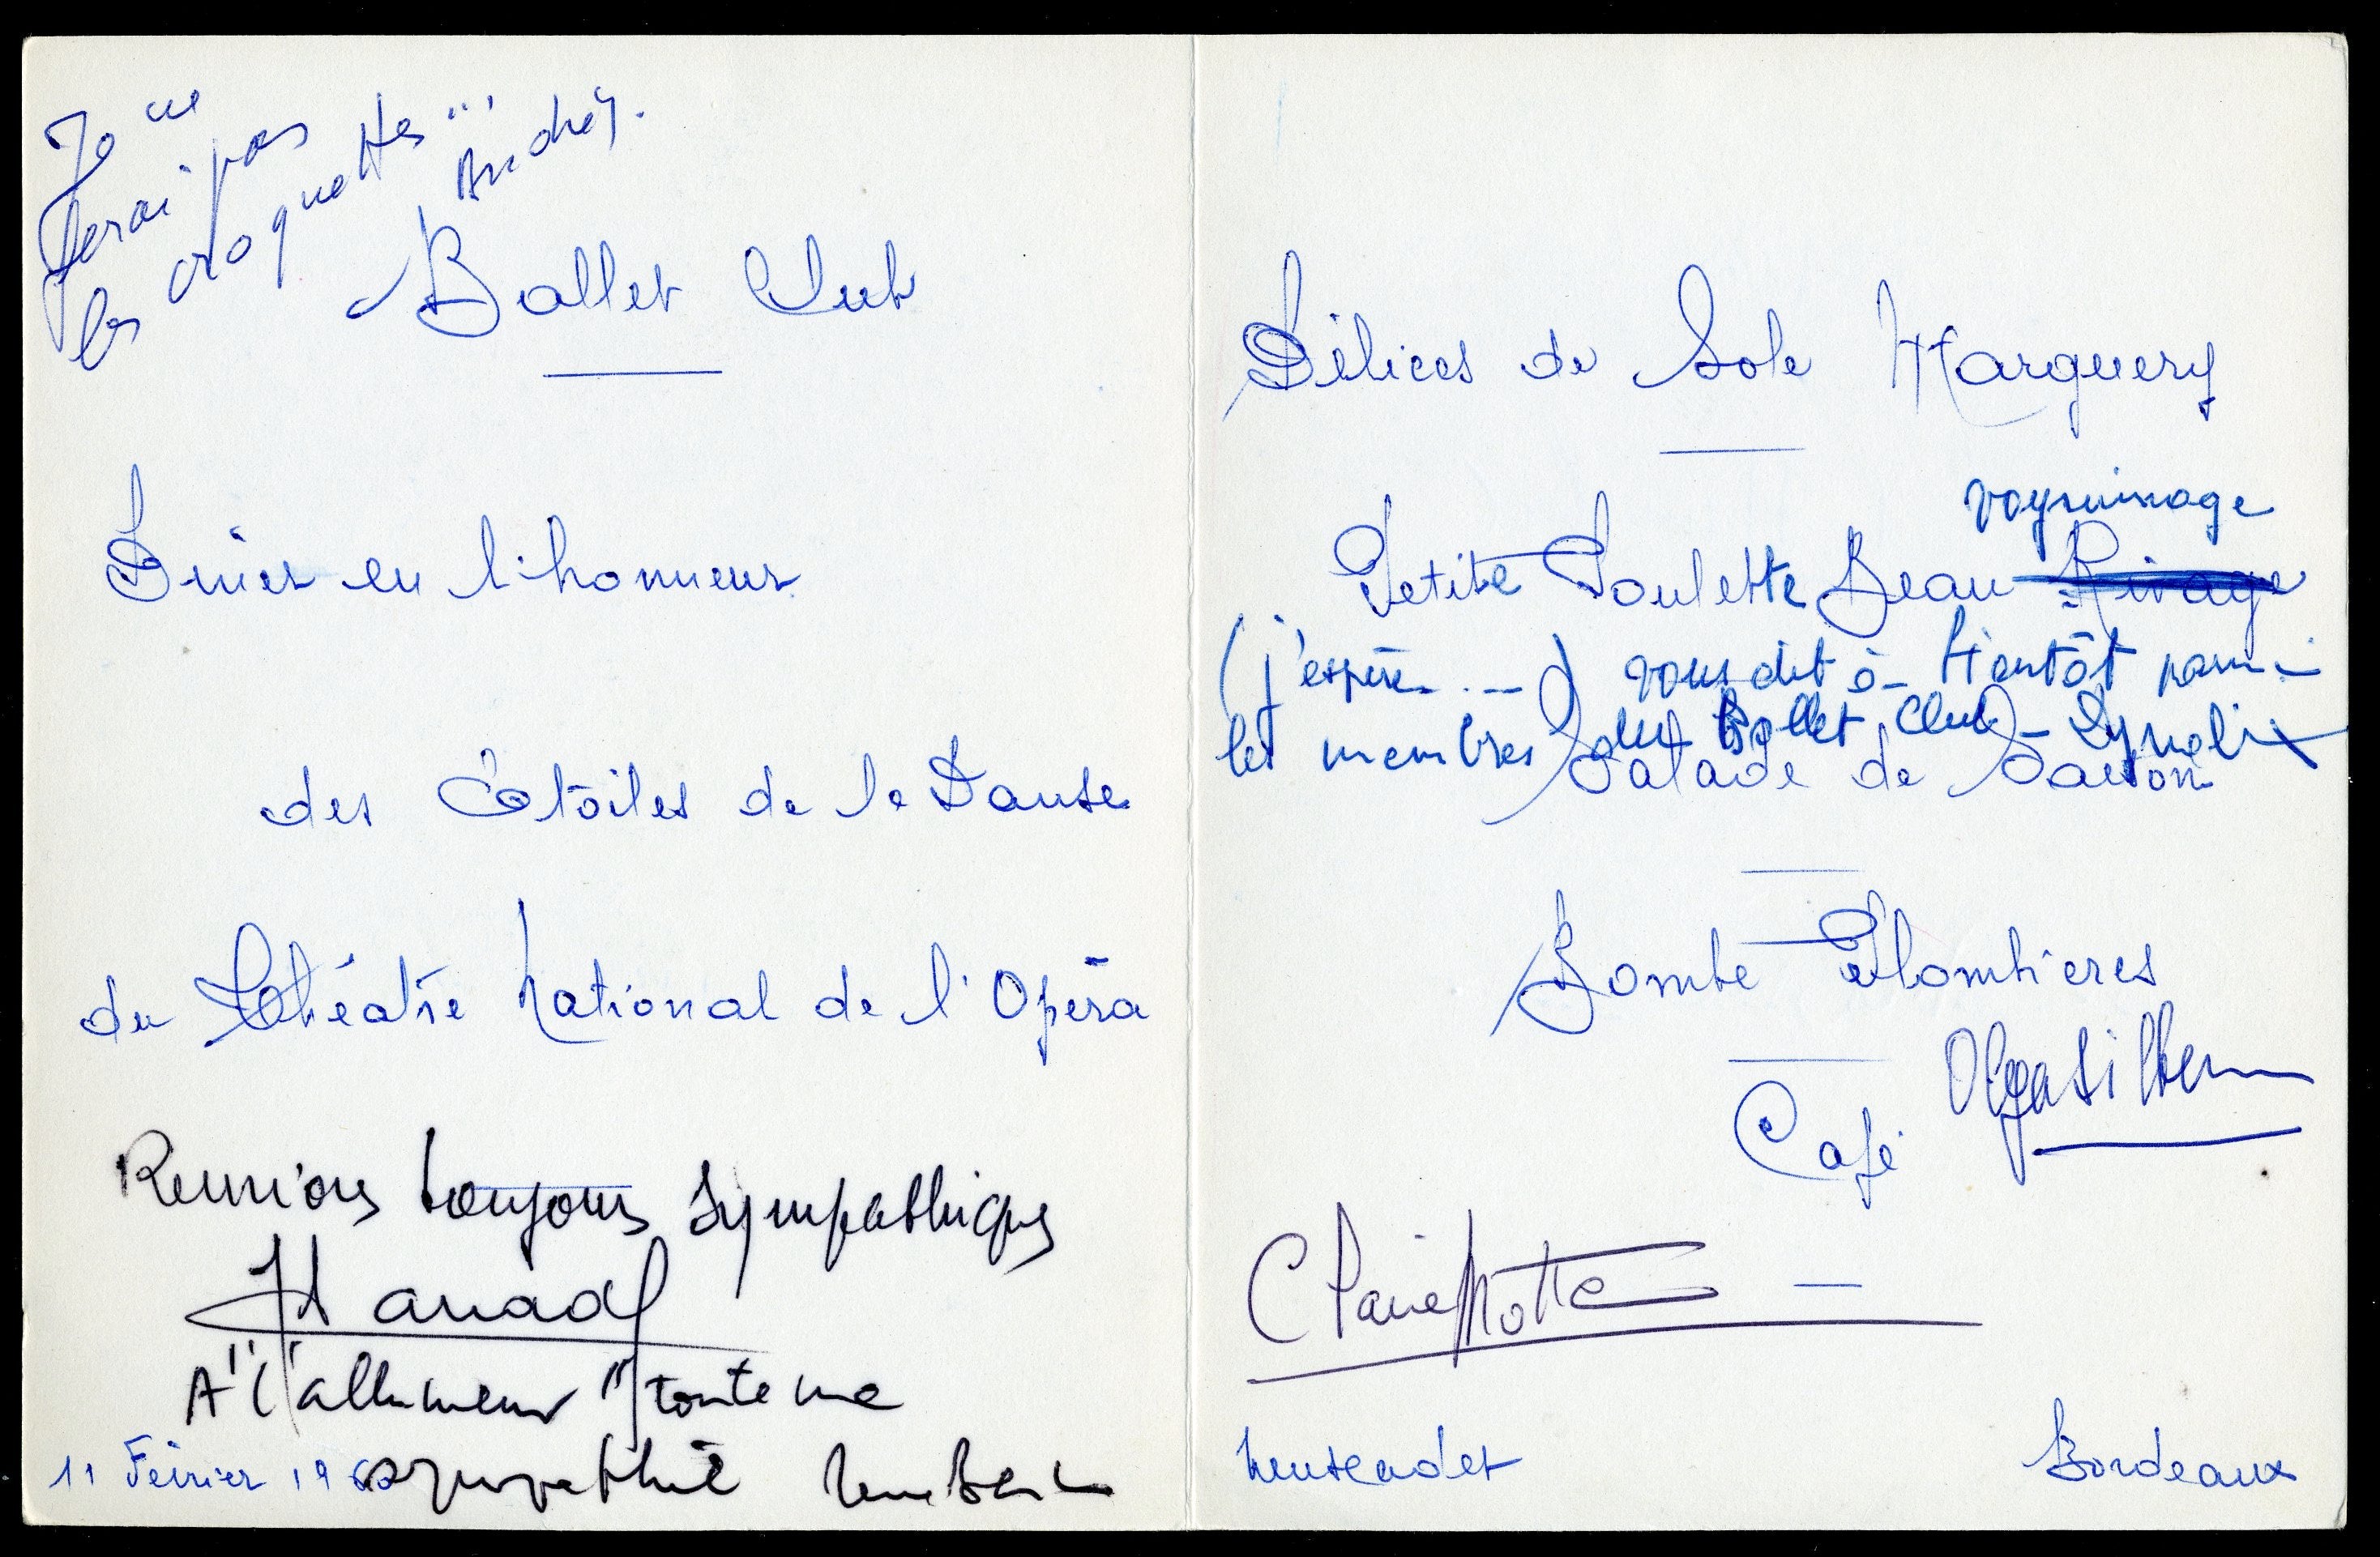 Je ne
ferai pas
les croquettes"
Andrej.
Ballet Club
Diner en l'honneur
des Étoiles de la Danse
du Théatre National de l'Opéra
Reunions toujours sympathiques
A "l'allumeur" toute ma
sympathie
11 Février 196
Délices de Sole Marguery
voysinage
Petite Poulette Beau Rivage
(j'espère...) vous dit à bientôt parmi
les membres du Ballet Club -
Salade de Saison
Bombe Plombieres
Café
Claire Motte
Muscadet
Bordeaux